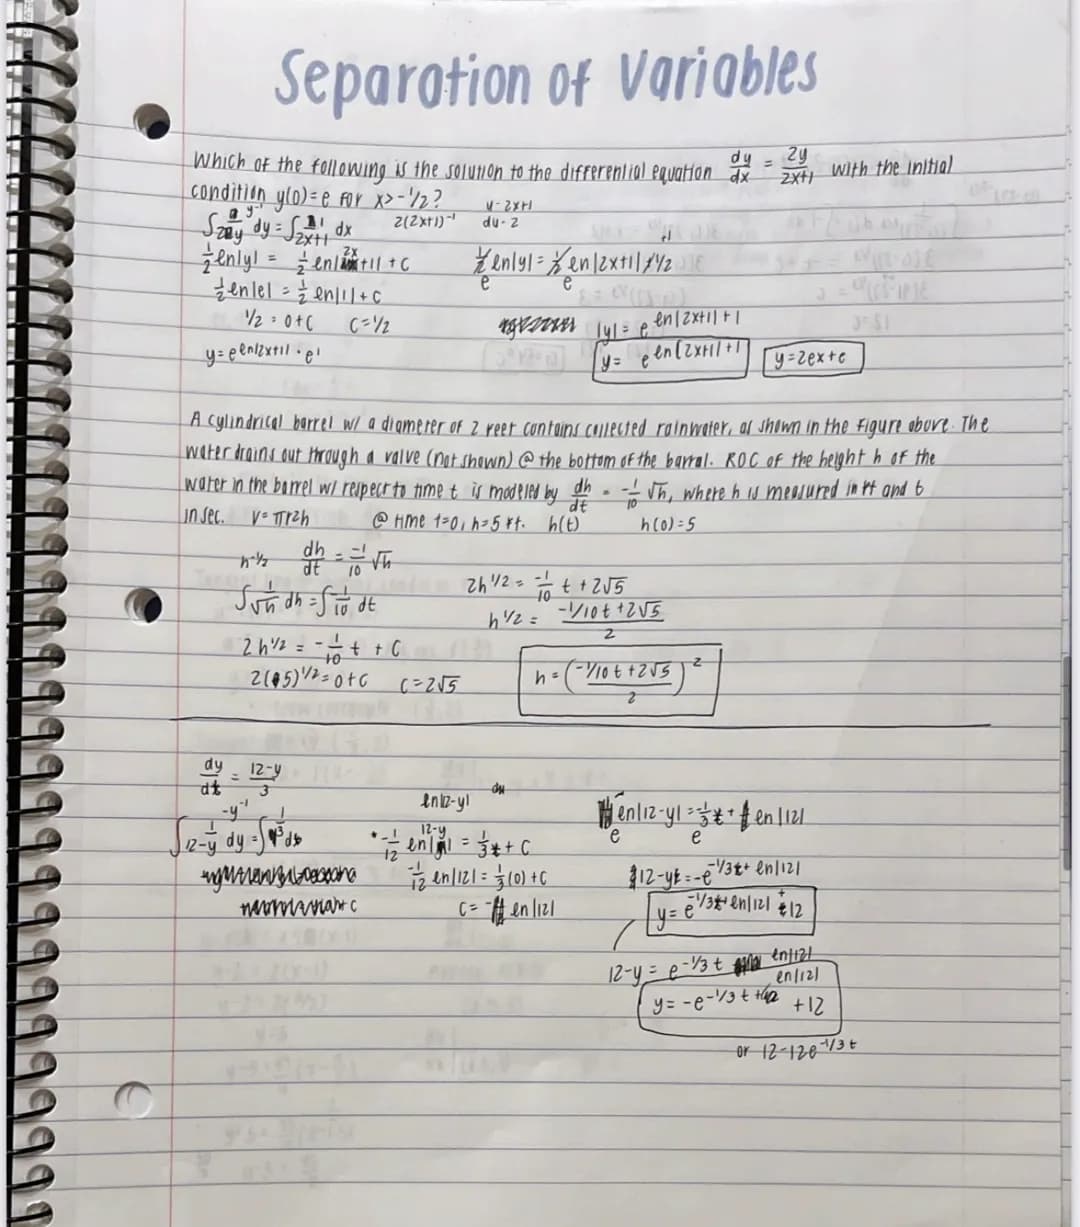 Separation of Variables
Which of the following is the solution to the differential equation dy/dx = 2y/2x+1 with the initial
condition y(0)=e for x>-1/2?
u-2x+1
2(2x+1)⁻¹ du-2
dy = ∫ 1/2x+1 dx
½ en|y| = ½ en|2x+1| + C
½ en|e| = ½ en|1| + C
1/2 = 0+C C=1/2
y = e^en|2x+1| · e¹
½ en|y| = ½ en|2x+1| + ½
e e
|y| = e^en|2x+1|+1
y = e^en(2x+1)+1
y=2ex+e
A cylindrical barrel w/ a diameter of 2 feet contains collected rainwater, as shown in the figure above. The
water drains out through a valve (not shown) @ the bottom of the barral. ROC of the height h of the
water in the barrel w/ respect to time t is modeled by dh/dt = -1/10 √h, where h is measured in ft and t
in sec. V=πr2h @ time t=0, h=5 ft. h(t) h(0)=5
h-1/2 dh/dt = -1/10 √h
∫ 1/√h dh = ∫ -1/10 dt
2h^1/2 = -1/10 t + C
2(5)^1/2 = 0+C C=2√5
2h^1/2 = -1/10 t + 2√5
h^1/2 = -1/10t+2√5 / 2
h = (-1/10t+2√5 / 2)²
dy/dt = 12-y/3
-y⁻¹
∫ 1/12-y dy = ∫ 1/3
+ C
en|12-y| du
12-y
-1/12 en|y| = 1/3 t + C
-1/12 en|12| = 1/3(0) + C
C = - en|12|
en|12-y| = -1/3 t + en|12|
e e
12-y = -e^-1/3t+en|12|
y = e^-1/3t+en|12| +12
12-y = e^-1/3t en|12|
en|12|
y = -e^-1/3t+ +12
or 12-12e^-1/3t